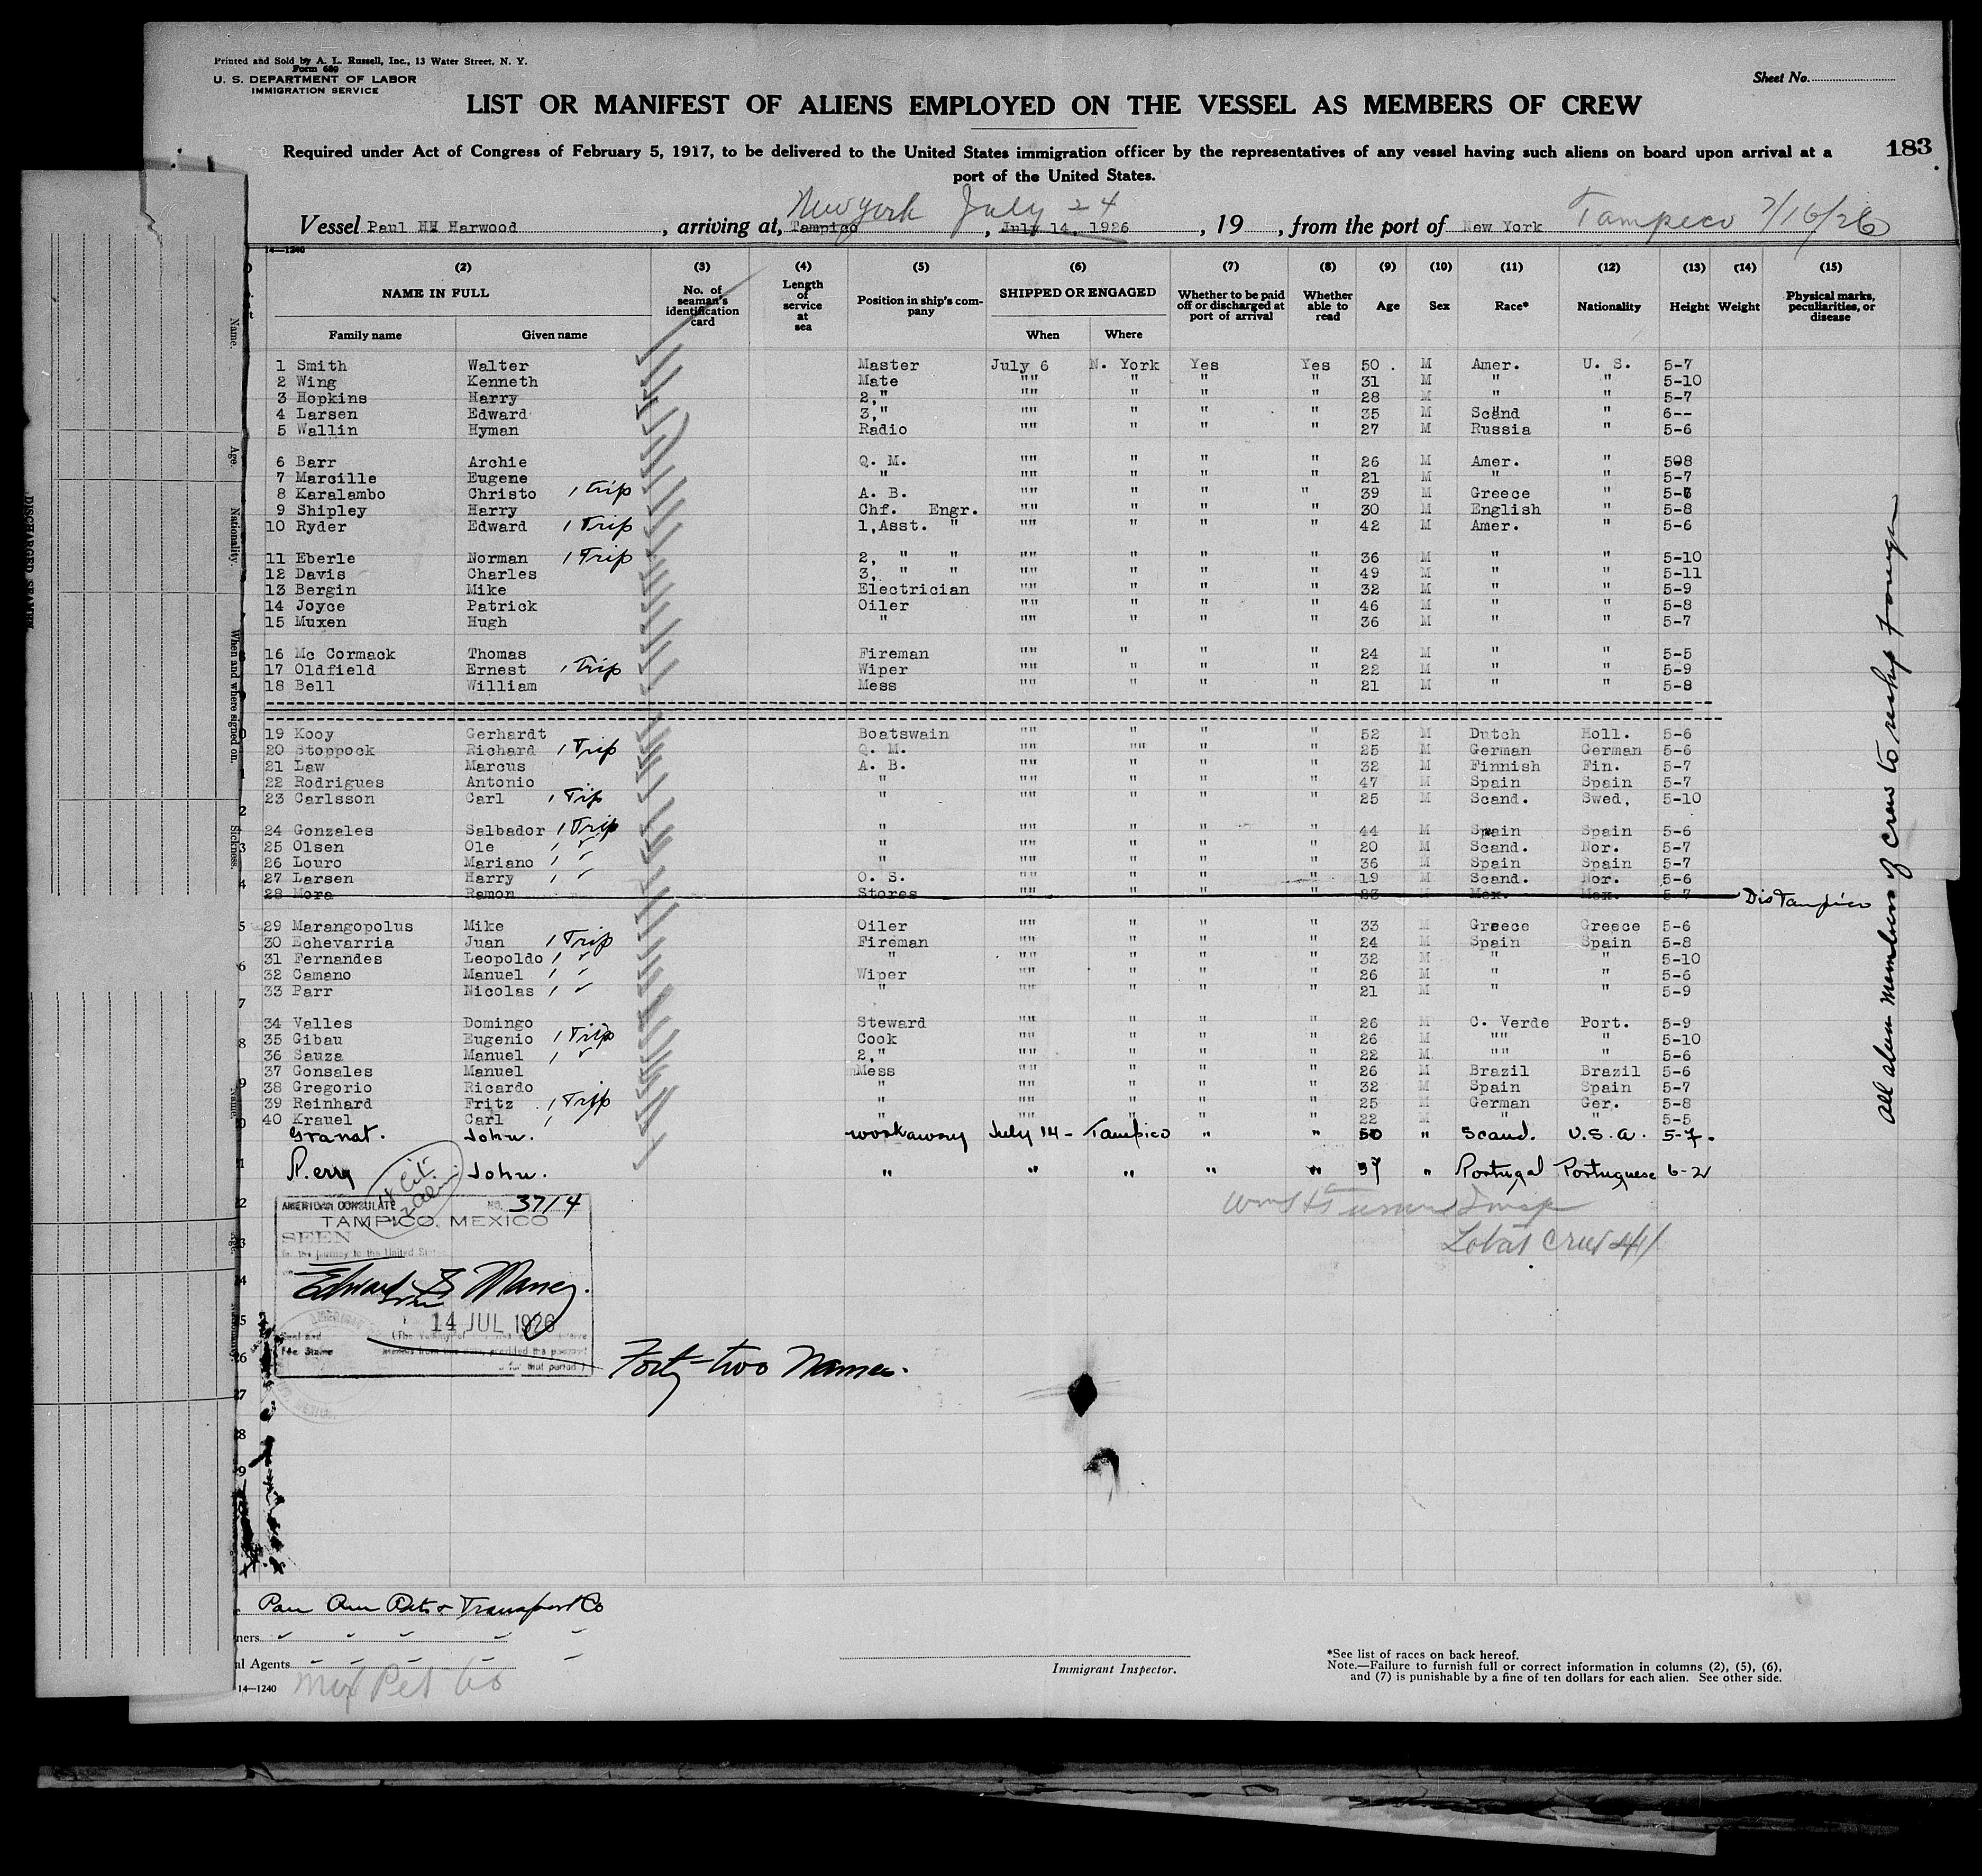 Printed and Sold by A. L. Russell, Inc., 13 Water Street, N. Y.
Form 680
U. S. DEPARTMENT OF LABOR
IMMIGRATION SERVICE
Sheet No.
LIST OR MANIFEST OF ALIENS EMPLOYED ON THE VESSEL AS MEMBERS OF CREW
183
Required under Act of Congress of February 5, 1917, to be delivered to the United States immigration officer by the representatives of any vessel having such aliens on board upon arrival at a
port of the United States.
New York July 24
Vessel Paul HH Harwood , arriving at, Tampico , July 14, 1926 , 19 , from the port of New York Tampico 7/16/26
14—1240
(2) (3) (4) (5) (6) (7) (8) (9) (10) (11) (12) (13) (14) (15)
NAME IN FULL No. of seaman's identification card Length of service at sea Position in ship's company SHIPPED OR ENGAGED Whether to be paid off or discharged at port of arrival Whether able to read Age Sex Race* Nationality Height Weight Physical marks, peculiarities, or disease
Family name Given name When Where
1 Smith Walter Master July 6 N. York Yes Yes 50 . M Amer. U. S. 5-7
2 Wing Kenneth Mate "" " " " 31 M " " 5-10
3 Hopkins Harry 2," "" " " " 28 M " " 5-7
4 Larsen Edward 3," "" " " " 35 M Scand " 6--
5 Wallin Hyman Radio "" " " " 27 M Russia " 5-6
6 Barr Archie Q. M. "" " " " 26 M Amer. " 508
7 Marcille Eugene " "" " " " 21 M " " 5-7
8 Karalambo Christo 1 trip A. B. "" " " " 39 M Greece " 5-6
9 Shipley Harry Chf. Engr. "" " " " 30 M English " 5-8
10 Ryder Edward 1 Trip 1,Asst. " "" " " " 42 M Amer. " 5-6
11 Eberle Norman 1 Trip 2, " " "" " " " 36 M " " 5-10
12 Davis Charles 3, " " "" " " " 49 M " " 5-11
13 Bergin Mike Electrician "" " " " 32 M " " 5-9
14 Joyce Patrick Oiler "" " " " 46 M " " 5-8
15 Muxen Hugh " "" " " " 36 M " " 5-7
16 Mc Cormack Thomas Fireman "" " " " 24 M " " 5-5
17 Oldfield Ernest 1 Trip Wiper "" " " " 22 M " " 5-9
18 Bell William Mess "" " " " 21 M " " 5-8
19 Kooy Gerhardt Boatswain "" " " " 52 M Dutch Holl. 5-6
20 Stoppock Richard 1 Trip Q. M. "" "" " " 25 M German German 5-6
21 Law Marcus A. B. "" " " " 32 M Finnish Fin. 5-7
22 Rodrigues Antonio " "" " " " 47 M Spain Spain 5-7
23 Carlsson Carl 1 Trip " "" " " " 25 M Scand. Swed, 5-10
24 Gonzales Salbador 1 Trip " "" " " " 44 M Spain Spain 5-6
25 Olsen Ole 1 " " "" " " " 20 M Scand. Nor. 5-7
26 Louro Mariano 1 " " "" " " " 36 M Spain Spain 5-7
27 Larsen Harry 1 " O. S. "" " " " 19 M Scand. Nor. 5-6
28 Mora Ramon Stores "" " " " 23 M Mex. Mex. 5-7 Dis Tampico
29 Marangopolus Mike Oiler "" " " " 33 M Greece Greece 5-6
30 Echevarria Juan 1 Trip Fireman "" " " " 24 M Spain Spain 5-8
31 Fernandes Leopoldo 1 " " "" " " " 32 M " " 5-10
32 Camano Manuel 1 " Wiper "" " " " 26 M " " 5-6
33 Parr Nicolas 1 " " "" " " " 21 M " " 5-9
34 Valles Domingo Steward "" " " " 26 M C. Verde Port. 5-9
35 Gibau Eugenio 1 Trip Cook "" " " " 26 M "" " 5-10
36 Sauza Manuel 1 " 2," "" " " " 22 M "" " 5-6
37 Gonsales Manuel Mess "" " " " 26 M Brazil Brazil 5-6
38 Gregorio Ricardo " "" " " " 32 M Spain Spain 5-7
39 Reinhard Fritz 1 Trip " "" " " " 25 M German Ger. 5-8
40 Krauel Carl 1 " "" " " " 22 M " " 5-5
Granat. John. workaway July 14 - Tampico " " 50 " Scand. U.S.A. 5-7.
Perry John. " " " " " 37 " Portugal Portuguese 6-2
All alien members of crew to reship foreign
AMERICAN CONSULATE NO. 3714
TAMPICO, MEXICO
SEEN
for the journey to the United States
Edward S Maney.
14 JUL 1926
Forty-two Names.
Pan Am Pet & Transport Co
ners " " " " "
al Agents " " " " "
Mex Pet Co
14—1240
Immigrant Inspector.
*See list of races on back hereof.
Note.—Failure to furnish full or correct information in columns (2), (5), (6),
and (7) is punishable by a fine of ten dollars for each alien. See other side.
Name.
Age.
Nationality.
When and where signed on.
Sickness.